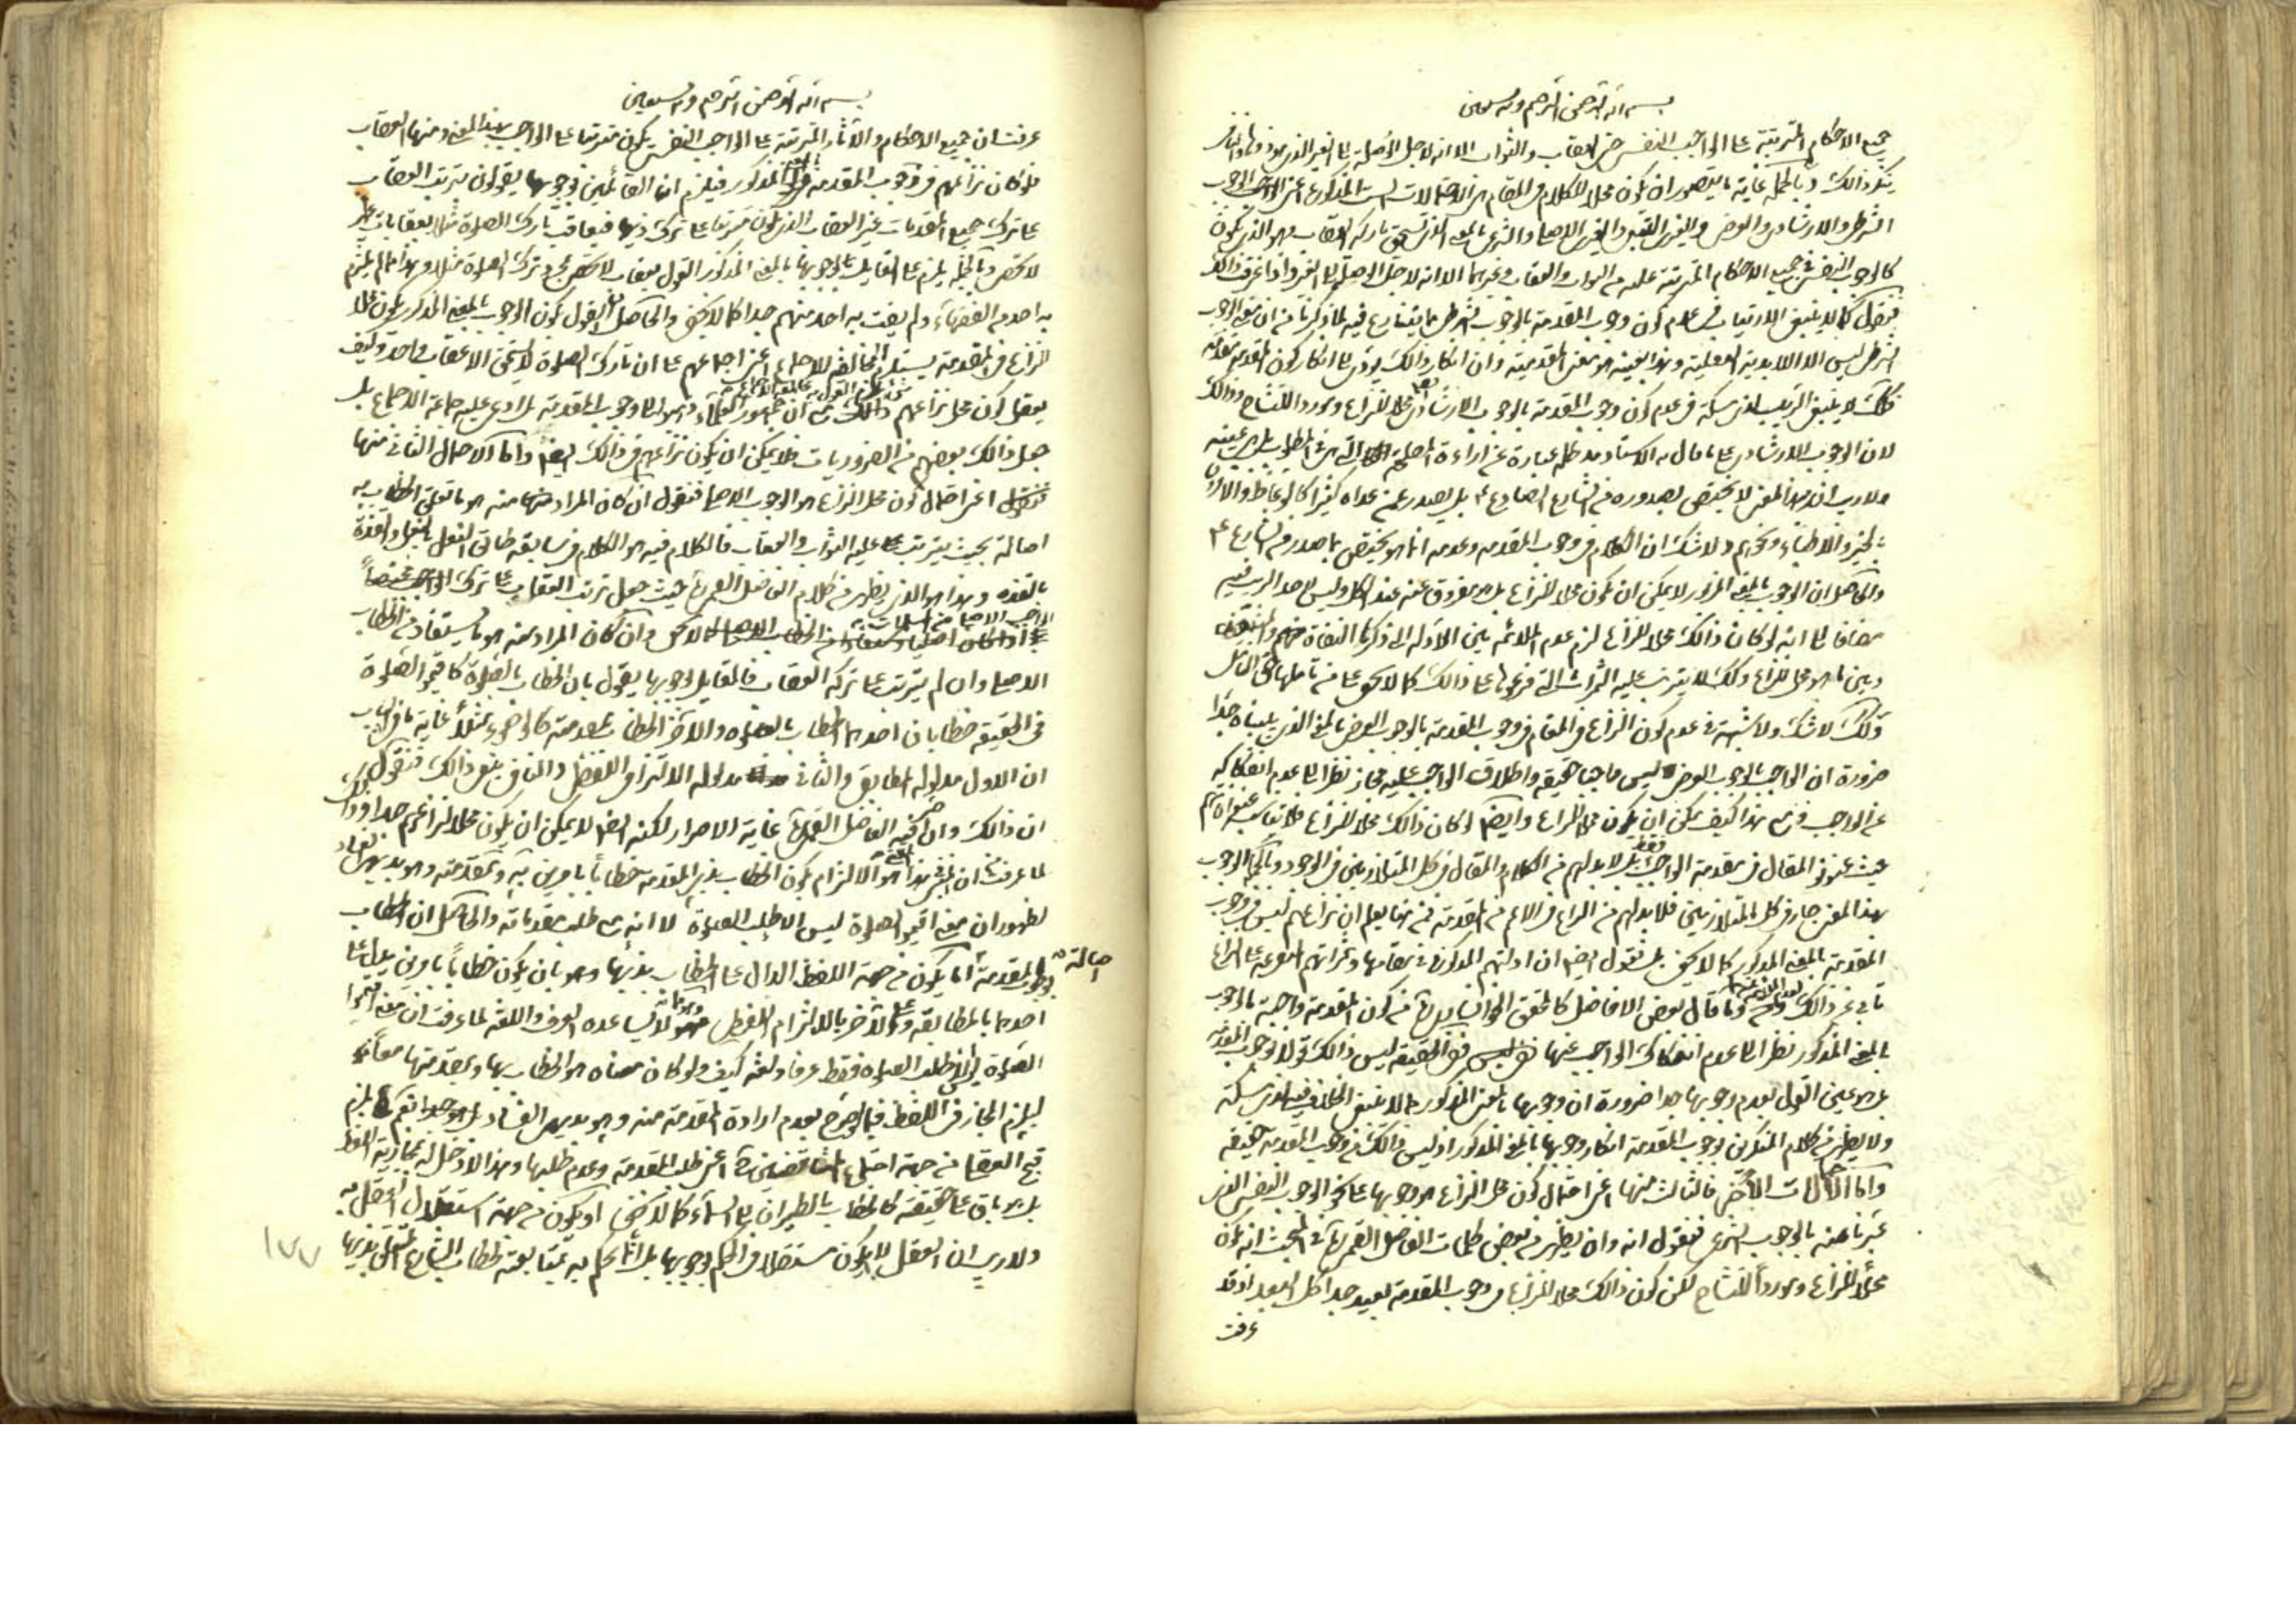 بسم الله الرحمن الرحيم وبه نستعين
جميع الاحكام المترتبة على الواجب النفسى حتى العقاب والثواب الا انه لاجل الوصلة الى الغير الذى هو
ذلك وبالجملة غاية ما يتصور ان يكون محلا للكلام فى المقام من الاحتمالات الست المذكورة اعنى الوجوب
الشرطى والارشادى والعرضى والغيرى التبعى والغيرى الاصلى والشرعى بالمعنى الذى يستحق تاركه العقاب وهو الذى يكون
كالوجوب النفسى فى جميع الاحكام المترتبة عليه من الثواب والعقاب وغيرهما الا انه لاجل الوصلة الى الغير واذا عرفت ذلك
فنقول كما لا ينبغى الارتياب فى عدم كون وجوب المقدمة بالوجوب الشرطى مما يتنازع فيه لما ذكرنا من ان معنى الوجوب
الشرطى ليس الا اللابدية العقلية وهذا بعينه هو معنى المقدمية وان انكار ذلك يؤدى الى انكار كون المقدمة مقدمة
كذلك لا ينبغى الريب لذى مسكة فى عدم كون وجوب المقدمة بالوجوب الارشادى ايضا محلا للنزاع وموردا للتشاح وذلك
لان الوجوب الارشادى على ما قال به الاستاد مد ظله عبارة عن اراءة المصلحة التى هى فى المطلوب بل هى عينه
ولا ريب ان هذا المعنى لا يختص بصدوره من الشارع الصادع بل يصدر عمن عداه كثيرا كالوعاظ والامرين
بالخير والاطباء ونحوهم ولا شك ان الكلام فى وجوب المقدمة وعدمه انما هو يختص بما صدر من الشارع ع
والحاصل ان الوجوب بالمعنى المزبور لا يمكن ان يكون محلا للنزاع بل هو مفروق عنه عند الكل وليس لاحد الريب فيه
مضافا الى انه لو كان ذلك محلا للنزاع لزم عدم الملائمة بين الادلة التى ذكرها النفاة منهم والمثبتين
وبين ما هو محل للنزاع وكذلك لا يترتب عليه الثمرات التى فرعوها على ذلك كما لا يخفى على من تاملها حق التامل
وكذلك لا شك ولا شبهة فى عدم كون النزاع فى المقام فى وجوب المقدمة بالوجوب العرضى بالمعنى الذى بيناه جدا
ضرورة ان الواجب بالوجوب العرضى ليس واجبا حقيقة واطلاق الواجب عليه مجاز نظرا الى عدم انفكاكه
عن الواجب فمع هذا كيف يمكن ان يكون محلا للنزاع وايضا لو كان ذلك محلا للنزاع فلا يناسب عنوانهم
حيث عنونوا المقال فى مقدمة الواجب فقط بل لا بد لهم من الكلام والمقال فى كل المتلازمين فى الوجود وبالجملة الوجوب
بهذا المعنى جار فى كل المتلازمين فلا بد لهم من النزاع فى الاعم من المقدمة فمن هنا يعلم ان نزاعهم ليس فى وجوب
المقدمة بالمعنى المذكور كما لا يخفى بل نقول ايضا ان ادلتهم المذكورة فى مقامها وثمراتهم المتفرعة على النزاع
تابى عن ذلك وما قال بعض الافاضل كالمحقق الخوانسارى من كون المقدمة واجبة بالوجوب
بالمعنى المذكور نظرا الى عدم انفكاك الواجب عنها ففى الحقيقة ليس ذلك قولا بوجوب المقدمة
بل هو عين القول بعدم وجوبها جدا ضرورة ان وجوبها بالمعنى المذكور مما لا ينبغى الخلاف فيه لذى مسكة
ولا يظهر من كلام المنكرين لوجوب المقدمة انكار وجوبها بالمعنى المذكور اذ ليس ذلك من وجوب المقدمة حقيقة
واما الاحتمالات الاخر فالثالث منها اعنى احتمال كون محل النزاع هو وجوبها على نحو الوجوب النفسى الذى
عبرنا عنه بالوجوب الشرعى فنقول انه وان يظهر من بعض كلمات الفاضل القمى فى المبحث انه يكون
محلا للنزاع وموردا للتشاح لكن كون ذلك محلا للنزاع فى وجوب المقدمة بعيد جدا كل البعد اذ قد
عرفت
بسم الله الرحمن الرحيم وبه نستعين
عرفت ان جميع الاحكام والآثار المترتبة على الواجب النفسى يكون مترتبا على الواجب بهذا المعنى ومنها العقاب
فلو كان نزاعهم فى وجوب المقدمة بالمعنى المذكور فيلزم ان القائلين بوجوبها يقولون بترتب العقاب
على ترك جميع المقدمات غير العقاب الذى يكون مترتبا على ترك ذيها فيعاقب تارك الصلوة مثلا بعقابات غير
لا تحصى وبالجملة يلزم على القايل بوجوبها بالمعنى المذكور القول بعقاب لا تحصى بمجرد ترك الصلوة مثلا وهذا مما لم يلتزم
به احد من الفقهاء ولم يفت به احد منهم جدا كما لا يخفى والحاصل ان القول بكون الوجوب بالمعنى المذكور يكون محلا
للنزاع فى المقدمة يستلزم المخالفة للاجماع اعنى اجماعهم على ان تارك الصلوة لا يستحق الا عقاب واحد وكيف
يعقل كون محل نزاعهم ذلك مع ان جمهور العلماء ذهبوا الى وجوب المقدمة بل ادعى عليه جماعة الاجماع بل
جعل ذلك بعضهم من الضروريات فلا يمكن ان يكون نزاعهم فى ذلك ايضا واما الاحتمال الثانى منها
اعنى احتمال كون محل النزاع هو الوجوب الاصلى فنقول ان كان المراد منه هو ما تعلق الخطاب به
اصالة بحيث يترتب عليه الثواب والعقاب فالكلام فيه هو الكلام فى سابقه طابق النعل بالنعل والقذة
بالقذة وهذا هو الذى يظهر من كلام الفاضل القمى حيث جعل ترتب العقاب على ترك
الواجب الاصلى كما لا يخفى وان كان المراد منه هو ما يستفاد من الخطاب
الاصلى وان لم يترتب على تركه العقاب فالقايل بوجوبها يقول بان الخطاب بالصلوة كاقيموا الصلوة
فى الحقيقة خطابان احدهما الخطاب بالصلوة والاخر الخطاب بمقدمته كالوضوء مثلا غاية ما فى الباب
ان الاول مدلوله المطابقى والثانى مدلوله الالتزامى اللفظى والنافى يمنع ذلك فنقول
ان ذلك وان اصر فيه الفاضل القمى غاية الاصرار لكنه ايضا لا يمكن ان يكون محلا لنزاعهم جدا وذلك
لما عرفت ان المعنى هذا هو الالتزام بكون الخطاب بذى المقدمة خطابا بامرين به وبمقدمته وهو بديهى الفساد
لظهور ان معنى اقيموا الصلوة ليس الا طلب الصلوة لا انه مع طلب مقدماته والحاصل ان الخطاب
بالمقدمة اصالة اما يكون من جهة اللفظ الدال على الخطاب بذيها وهو بان يكون خطابا بامرين يدل على
احدهما بالمطابقة وعلى الاخر بالالتزام اللفظى وهو مما لا يساعده العرف واللغة لما عرفت ان معنى اقيموا
الصلوة ليس الا طلب الصلوة فقط عرفا ولغة كيف ولو كان معناه هو الخطاب بها وبمقدمتها معا
ليلزم المجاز فى اللفظ فيما لو صرح بعدم ارادة المقدمة منه وهو بديهى الفساد جدا نعم يلزم
قبح العقلى من جهة اجتماع المتناقضين اعنى طلب المقدمة وعدم طلبها وهذا لا دخل له بمجازية اللفظ
بل هو باق على حقيقته كالخطاب بالطيران الى السماء كما لا يخفى او يكون من جهة استقلال العقل به
ولا ريب ان العقل لا يكون مستقلا فى الحكم بوجوبها بل انما يحكم به بمتابعة خطاب الشارع المتعلق بذيها
١٧٧